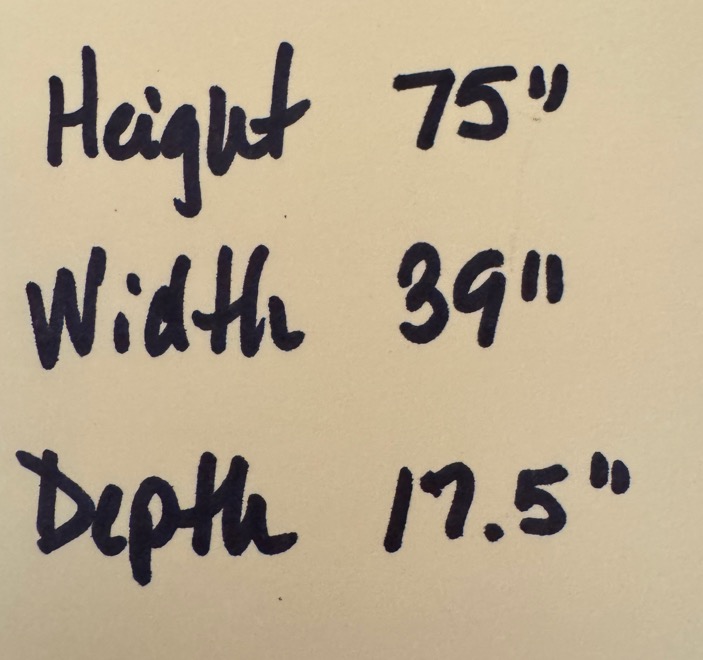 Height 75"
Width 39"
Depth 17.5"